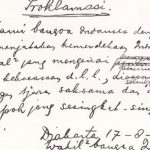 Proklamasi.
Kami bangsa Indonesia den
menjatakan kemerdekaan Indo
hal² jang mengenai
kekoeasaan d.l.l., di
gan tjara saksama dan
poh jang sesingkat-sing
Djakarta 17-8-
Wakil² bangsa